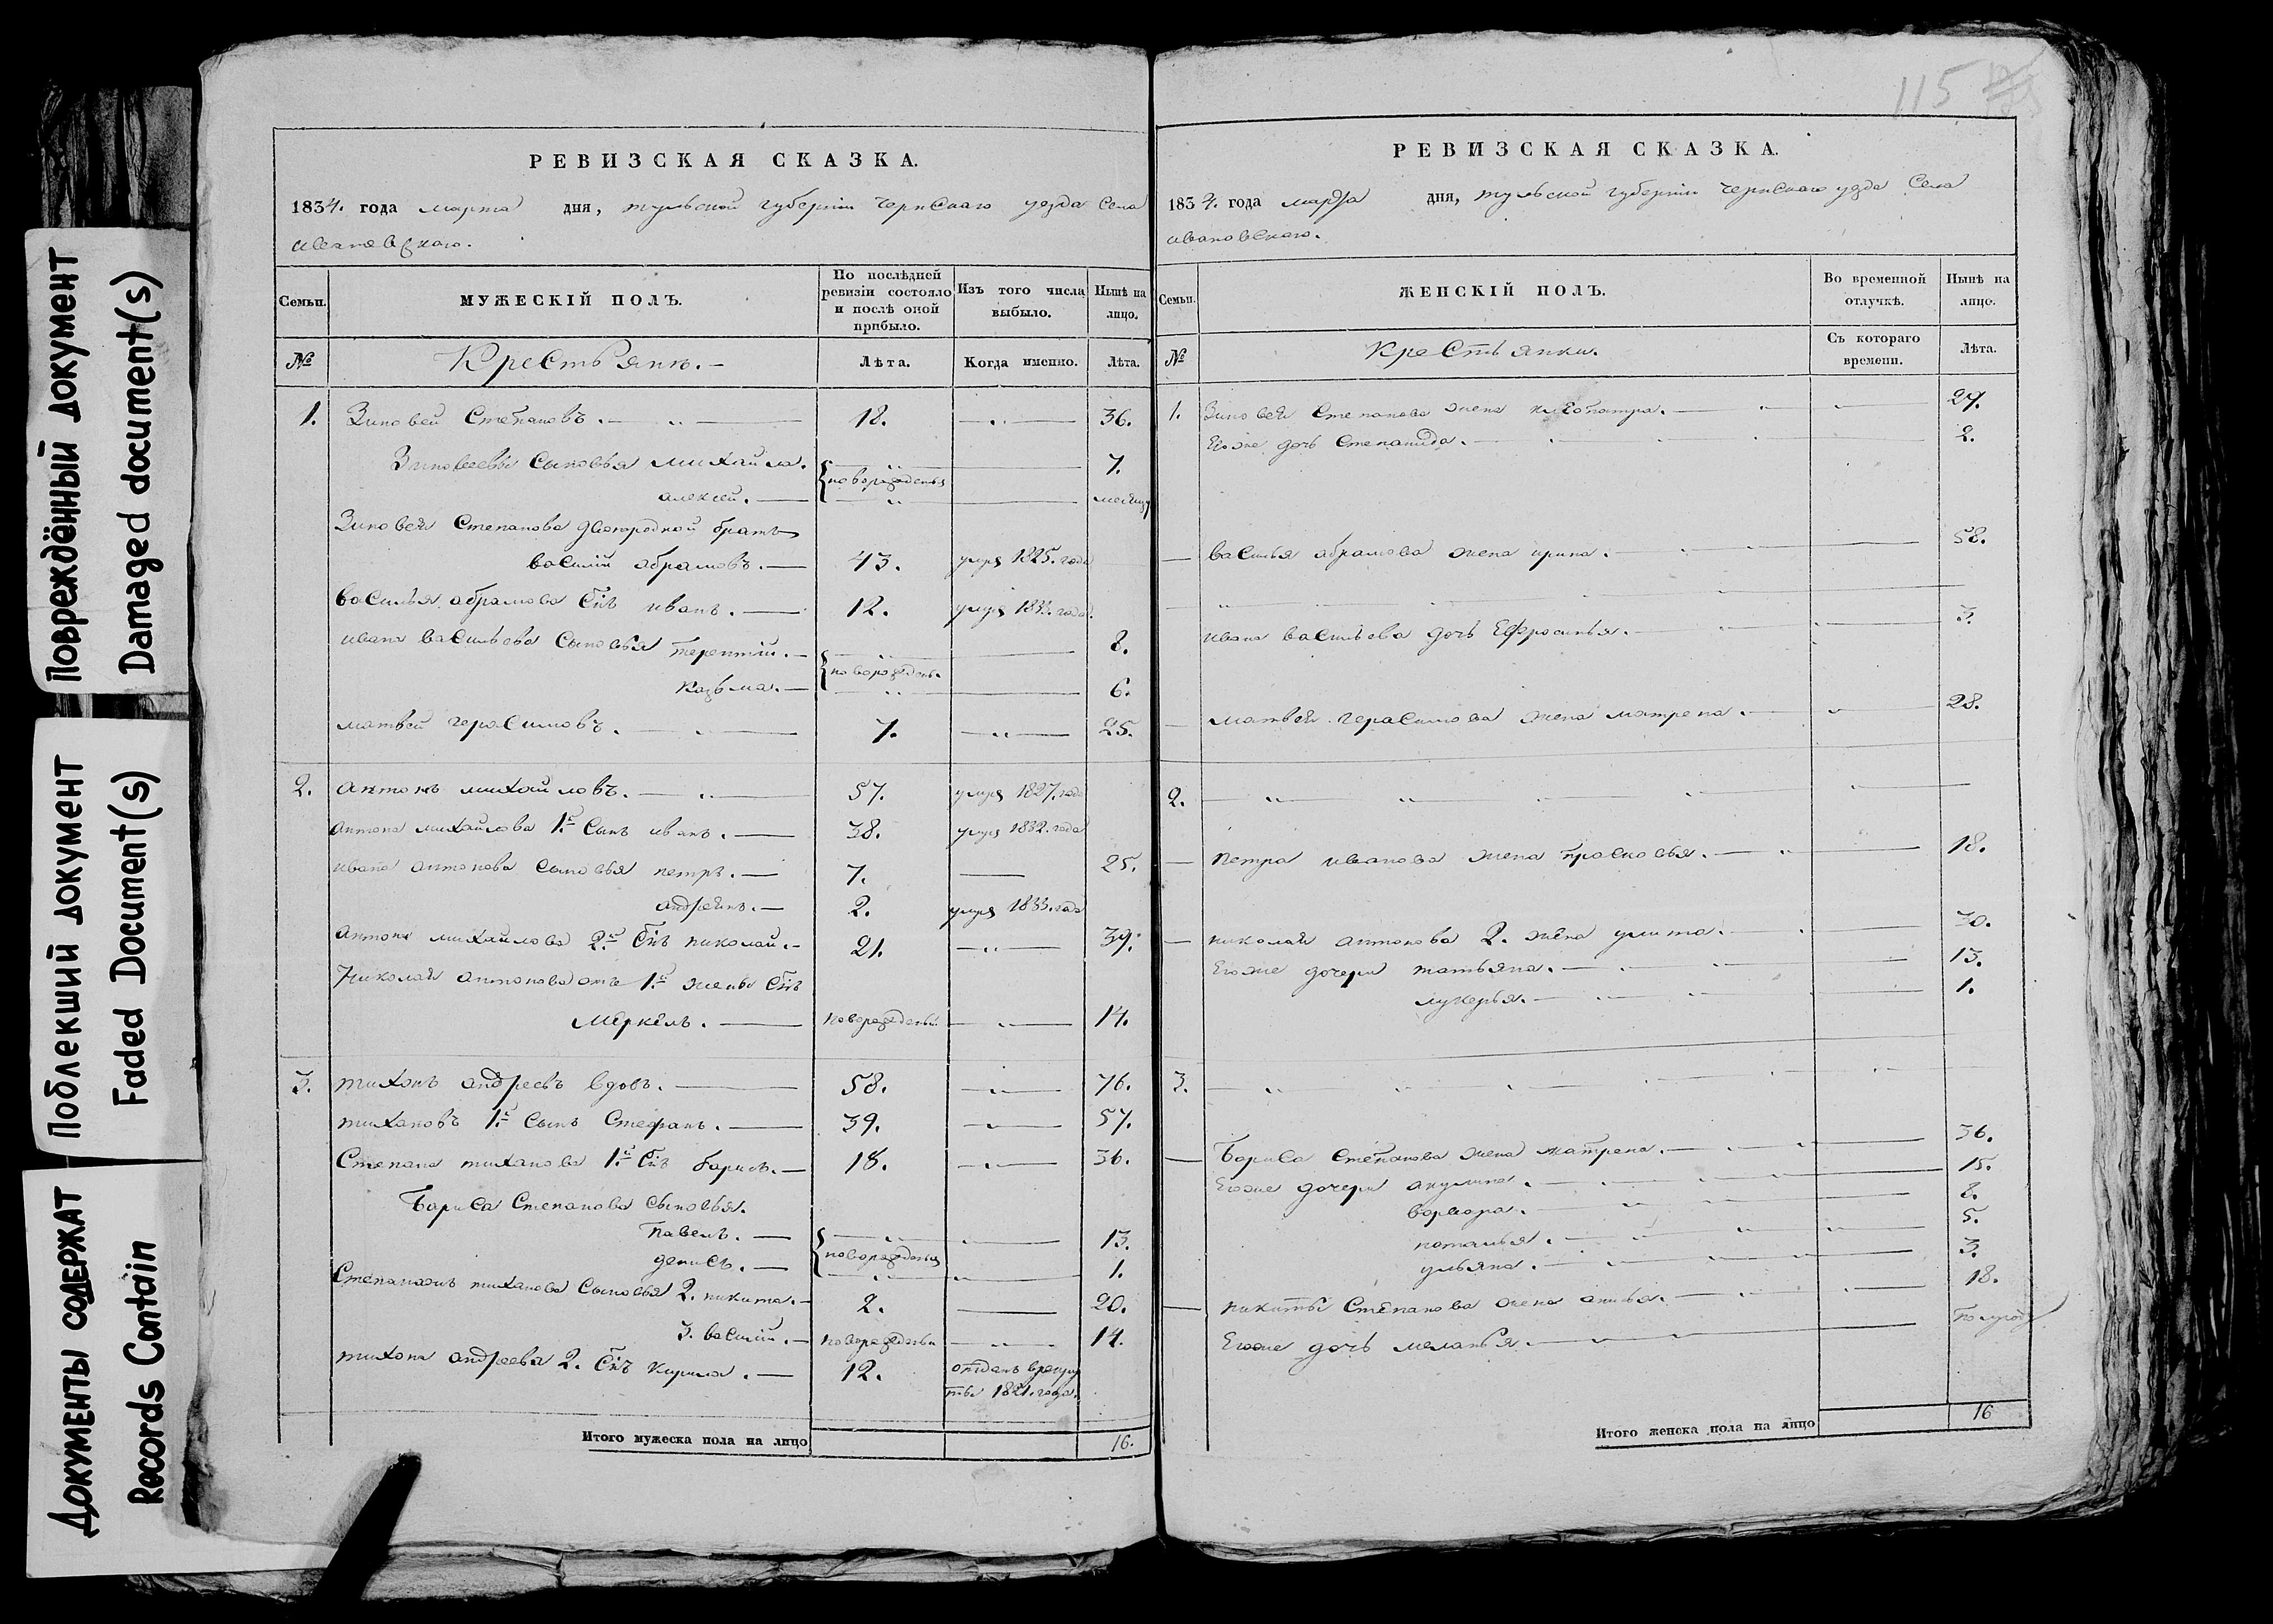 Повреждённый документ
Damaged document(s)
Поблекший документ
Faded Document(s)
Документы содержат
Records Contain
РЕВИЗСКАЯ СКАЗКА.
1834. года марта дня, тульской губернiи чернскаго уезда села
ивановскаго.
Семьи.
МУЖЕСКІЙ ПОЛЪ.
По послѣдней ревизіи состояло и послѣ оной прибыло.
Изъ того числа выбыло.
Нынѣ на лицо.
№
Крестьяне.
Лѣта.
Когда именно.
Лѣта.
1. Зиновей Степановъ. 18. 36.
Зиновеевы сыновья михайла. 7.
новорожденыя
алексей. месяцу
Зиновея Степанова двоюродной братъ
василiй абрамовъ. 43. умре 1825. года
василья абрамова Снъ иванъ. 12. умре года.
ивана васильева сыновья терентiй. 8.
новорожден.
Козьма. 6.
матвей герасимовъ. 7. 25.
2. антонъ михайловъ. 57. умре 1827. года
антона михайлова 1й сынъ иванъ. 38. умре 1832. года
ивана антонова сыновья петръ. 7. 25.
андреянъ. 2. умре 1833. года
антона михайлова 2й Снъ николай. 21. 39.
Николая антонова отъ 1й жены Снъ
Меркелъ. новорожденый 14.
3. тихонъ андреевъ вдовъ. 58. 76.
тихановъ 1й сынъ Стефанъ. 39. 57.
Степана тиханова 1й Снъ барисъ. 18. 36.
Бариса Степанова сыновья.
павелъ. 13.
новорожденыя
денисъ. 1.
тиханова сыновья 2. никита. 2. 20.
3. василiй. новорожденъ 14.
тихона андреева 2. Снъ Кирила. 12. отданъ врекрут
ты 1821. года.
Итого мужеска пола на лицо 16.
115
РЕВИЗСКАЯ СКАЗКА.
1834. года марта дня, тульской губернiи чернскаго уезда Села
ивановскаго.
Семьи.
ЖЕНСКІЙ ПОЛЪ.
Во временной отлучкѣ.
Нынѣ на лицо.
№
Крестьянки.
Съ котораго времени.
Лѣта.
1. Зиновея Степанова жена 29.
Егоже дочь Степанида. 2.
василья абрамова жена ирина. 58.
ивана васильева дочь Ефросинья. 3.
матвея герасимова жена матрена. 28.
2.
петра иванова жена прасковья. 18.
николая антонова 2. жена улита. 30.
Егоже дочери татьяна. 13.
лукерья. 1.
3.
Бориса Степанова жена матрена. 36.
Егоже дочери акулина. 15.
варвара. 8.
наталья. 5.
ульяна. 3.
никиты Степанова жена анисья. 18.
Егоже дочь меланья. полугоду
Итого женска пола на лицо 16